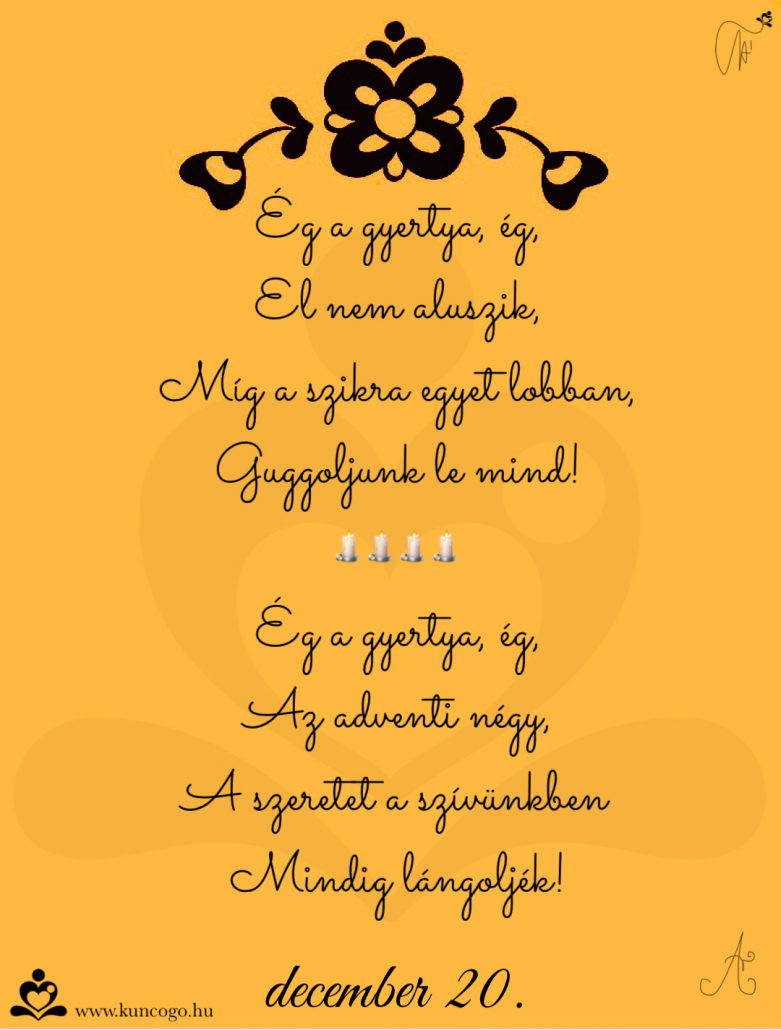 Ég a gyertya, ég,
El nem aluszik,
Míg a szikra egyet lobban,
Guggoljunk le mind!
Ég a gyertya, ég,
Az adventi négy,
A szeretet a szívünkben
Mindig lángoljék!
december 20.
www.kuncogo.hu